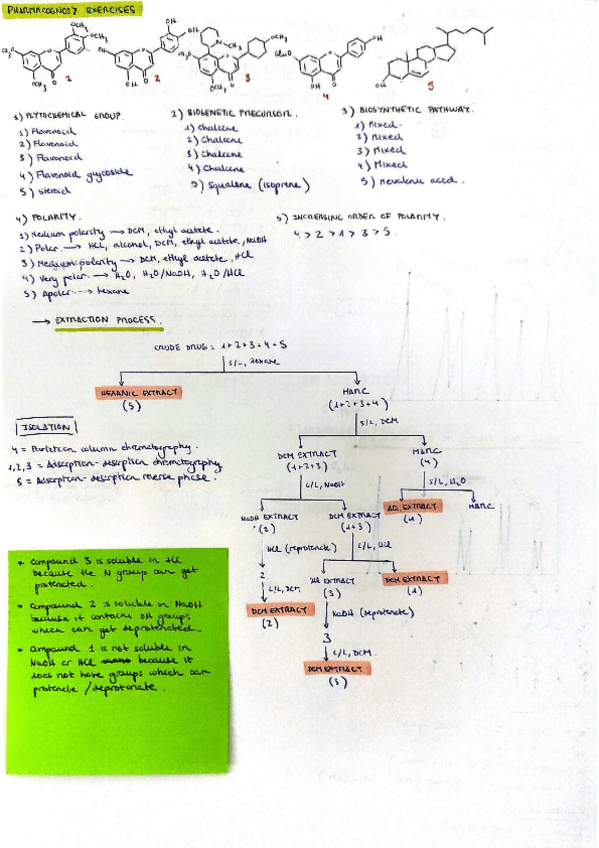 PHARMACOGNOSY EXERCISES
OCH3
OCH3
CH3O
OCH3
O
O
1
OH
OH
OH
O
O
OH
2
N
CH3
OCH3
CH3O
O
O
OCH3
3
OH
GluO
O
OH
O
4
OH
5
1) PHYTOCHEMICAL GROUP.
1) Flavonoid
2) Flavonoid
3) Flavonoid
4) Flavonoid glycoside
5) Steroid
2) BIOGENETIC PRECURSOR.
1) Chalcone
2) Chalcone
3) Chalcone
4) Chalcone
5) Squalene (isoprene)
3) BIOSYNTHETIC PATHWAY.
1) Mixed.
2) Mixed
3) Mixed
4) Mixed
5) Mevalonic acid.
4) POLARITY.
1) Medium polarity → DCM, ethyl acetate.
2) Polar → HCl, alcohol, DCM, ethyl acetate, NaOH
3) Medium polarity → DCM, ethyl acetate, HCl
4) Very polar → H2O, H2O/NaOH, H2O/HCl
5) Apolar → hexane
5) INCREASING ORDER OF POLARITY.
4 > 2 > 1 > 3 > 5.
→ EXTRACTION PROCESS.
CRUDE DRUG = 1+2+3+4+5
S/L, Hexane
HEXANIC EXTRACT
(5)
MARC
(1+2+3+4)
S/L, DCM
DCM EXTRACT
(1+2+3)
MARC
(4)
L/L, NaOH
S/L, H2O
NaOH EXTRACT
(2)
DCM EXTRACT
(1+3)
AQ. EXTRACT
(4)
MARC
HCl (reprotonate)
L/L, HCl
2
HCl EXTRACT
(3)
DCM EXTRACT
(1)
L/L, DCM
NaOH (deprotonate)
DCM EXTRACT
(2)
3
L/L, DCM.
DCM EXTRACT
(3)
ISOLATION
4 = Partition column chromatography.
1,2,3 = Adsorption-desorption chromatography
5 = Adsorption-desorption reverse phase.
* Compound 3 is soluble in HCl
because the N group can get
protonated.
* Compound 2 is soluble in NaOH
because it contains OH groups,
which can get deprotonated.
* Compound 1 is not soluble in
NaOH or HCl because it
does not have groups which can
protonate / deprotonate.